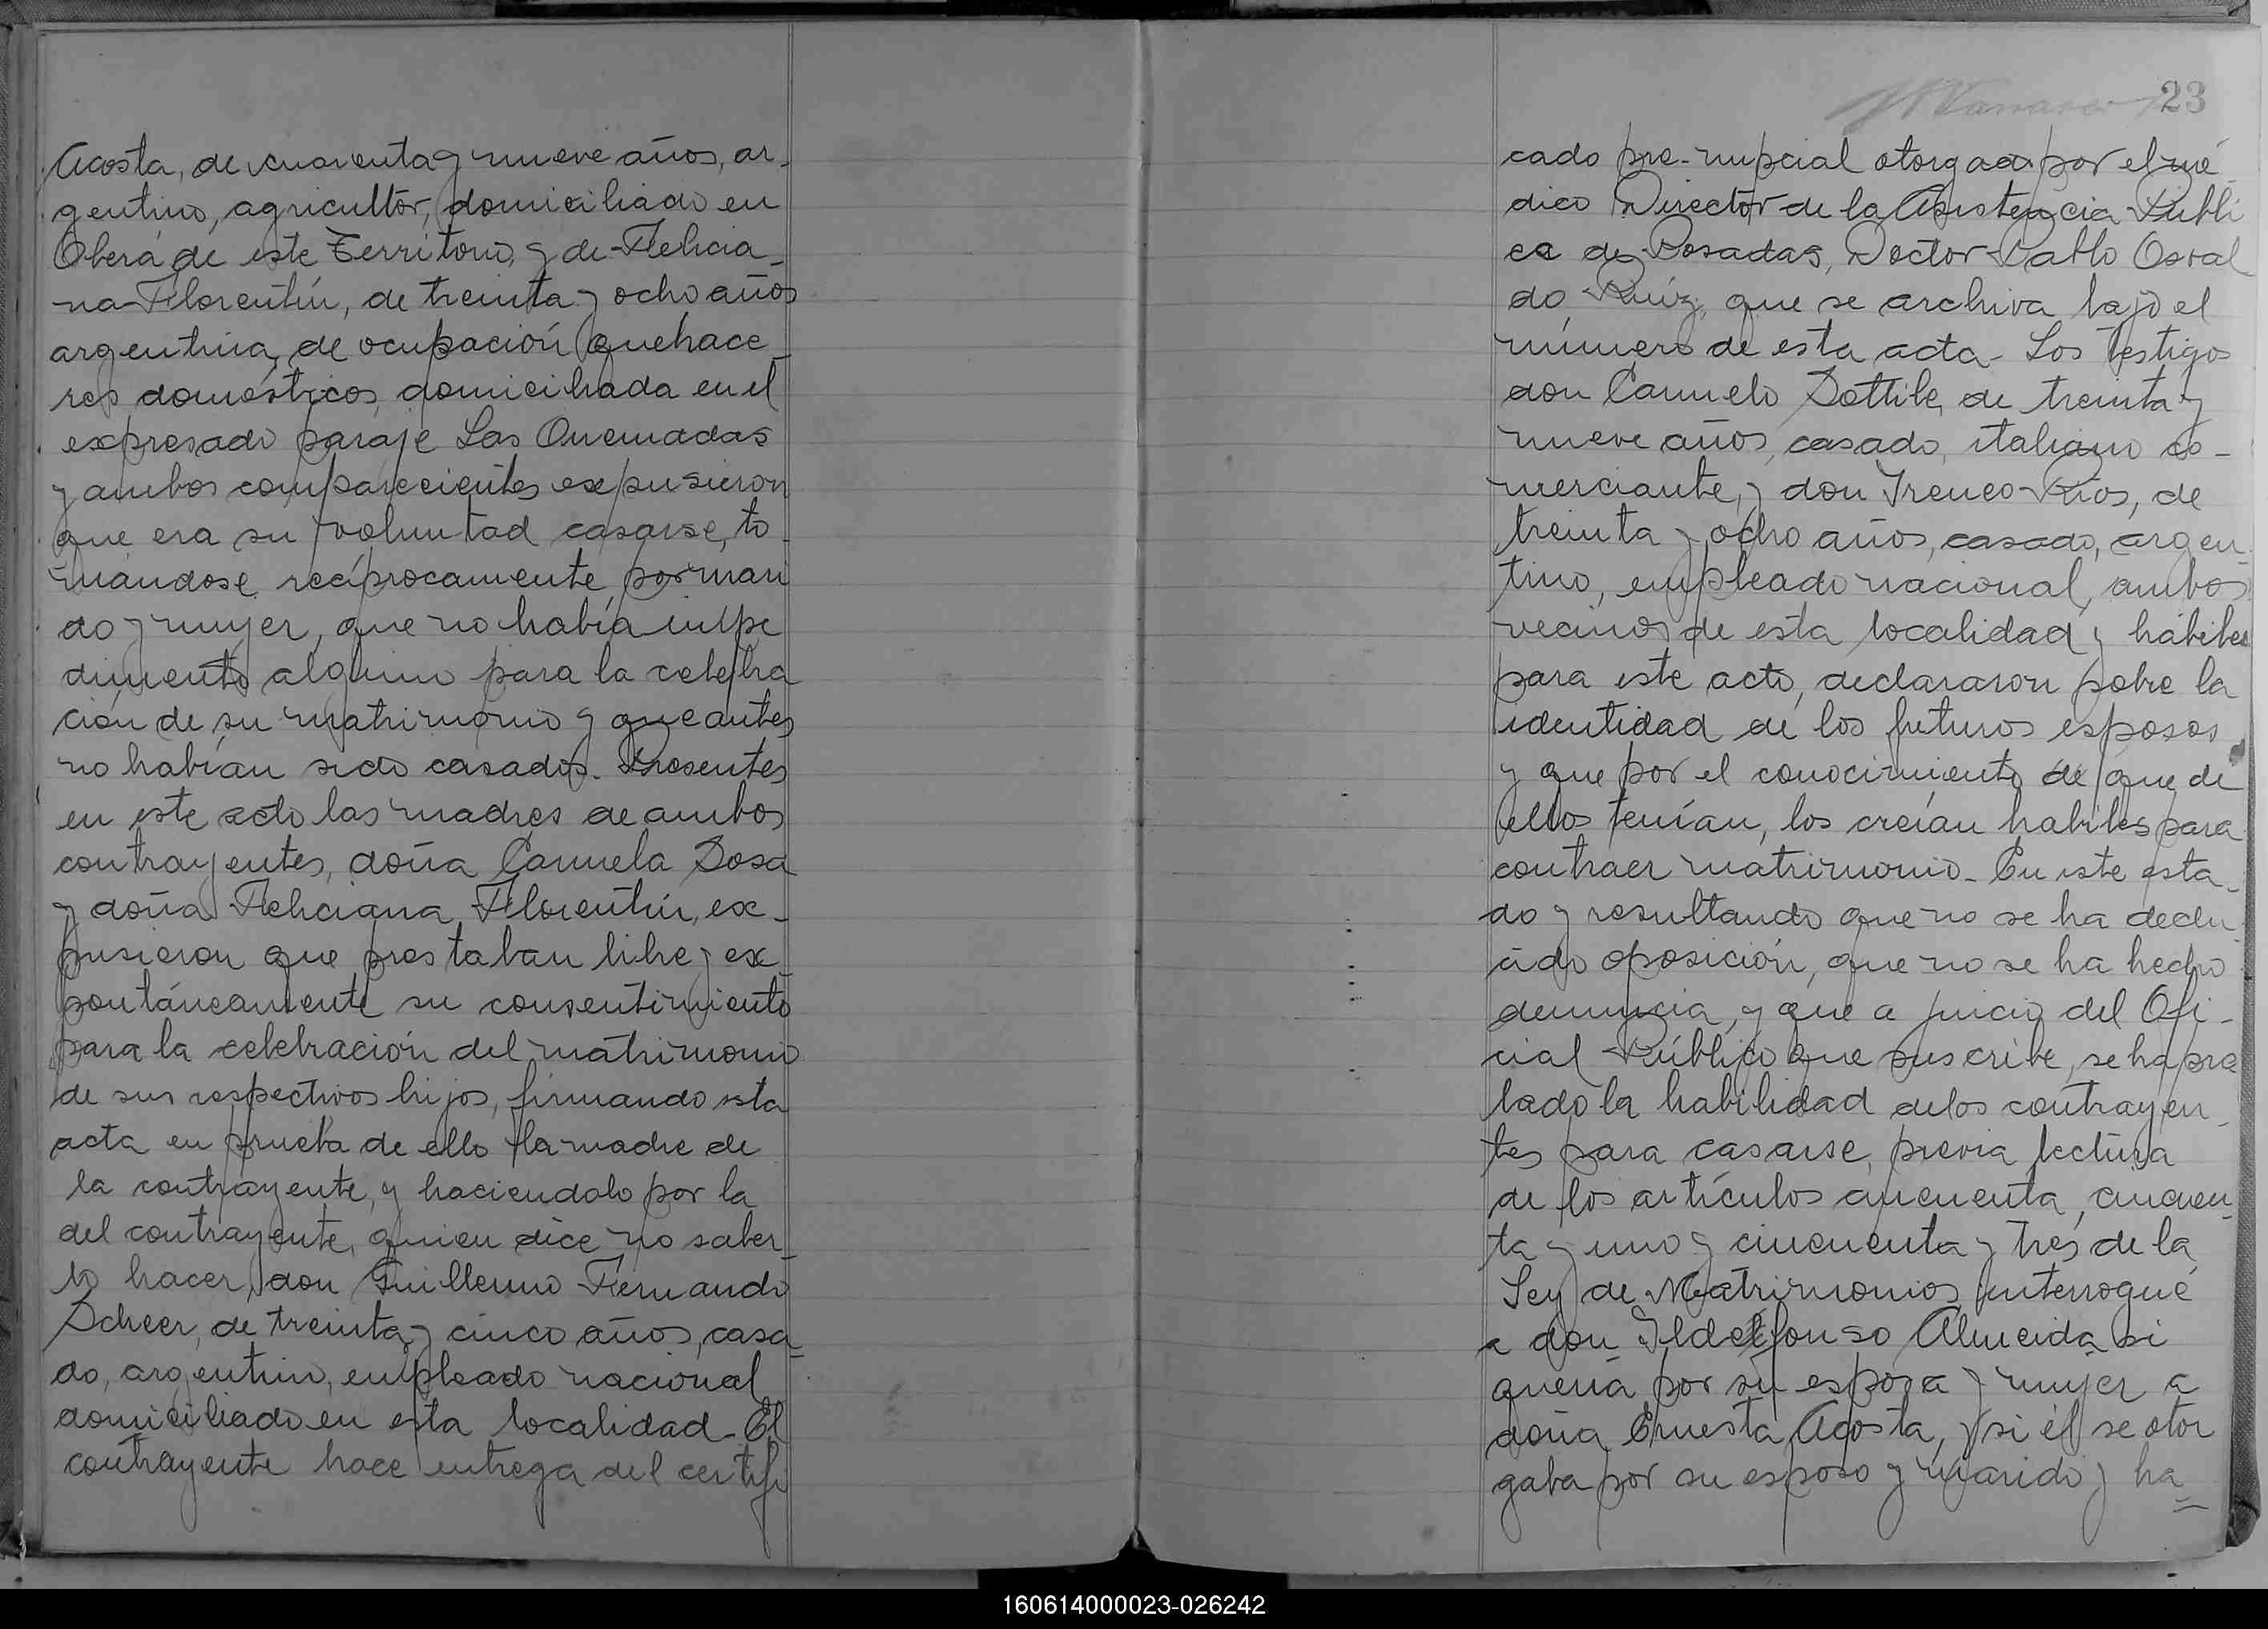 Acosta, de cuarenta y nueve años, ar-
gentino, agricultor, domiciliado en
Oberá de este Territorio, y de Felicia-
na Florentín, de treinta y ocho años
argentina, de ocupación quehace-
res domésticos, domiciliada en el
expresado paraje Las Quemadas
y ambos comparecientes expusieron
que era su voluntad casarse, to-
mándose recíprocamente por mari
do y mujer, que no había impe
dimento alguno para la celebra
ción de su matrimonio y que antes
no habían sido casados. Presentes
en este acto las madres de ambos
contrayentes, doña Carmela Sosa
y doña Feliciana Florentín, ex-
pusieron que prestaban libre y ex-
pontáneamente su consentimiento
para la celebración del matrimonio
de sus respectivos hijos, firmando esta
acta en prueba de ello la madre de
la contrayente, y haciendolo por la
del contrayente, quien dice no saber-
lo hacer, don Guillermo Fernando
Scheer, de treinta y cinco años, casa-
do, argentino, empleado nacional
domiciliado en esta localidad. El
contrayente hace entrega del certifi
23
cado pre-nupcial otorgado por el mé-
dico Director de la Asistencia Públi
ca de Posadas, Doctor Pablo Osval
do Ruíz, que se archiva bajo el
número de esta acta. Los testigos
don Carmelo Sottile, de treinta y
nueve años, casado, italiano co-
merciante, y don Ireneo Ríos, de
treinta y ocho años, casado, argen-
tino, empleado nacional, ambos
vecinos de esta localidad y hábiles
para este acto, declararon sobre la
identidad de los futuros esposos
y que por el conocimiento de que de
ellos tenían, los creían habiles para
contraer matrimonio. En este esta-
do y resultando que no se ha dedu-
cido oposición, que no se ha hecho
denuncia, y que a juicio del Ofi-
cial Público que suscribe, se ha pro
bado la habilidad de los contrayen-
tes para casarse, previa lectura
de los artículos cincuenta, cincuen-
ta y uno y cincuenta y tres de la
Ley de Matrimonios interrogué
a don Ildelfonso Almeida si
quería por su esposa y mujer a
doña Ernesta Acosta, y si él se otor
gaba por su esposo y marido y ha-
160614000023-026242